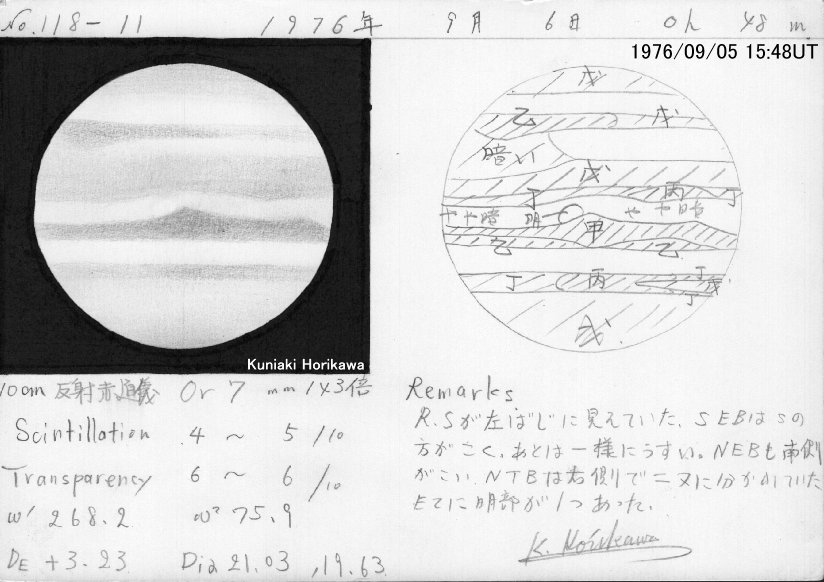 No.118-11 1976年 9月 6日 0h 48m
1976/09/05 15:48UT
戊
乙 戊
暗い
戊
丁 丙 丁
やや暗 明 やや暗
甲
乙 乙
丁 丙 丁 戊
丁
戊
Kuniaki Horikawa
10cm 反射赤道儀 Or 7 mm 143倍
Scintillation 4 ~ 5/10
Transparency 6 ~ 6/10
ω¹ 268.2 ω² 75.9
DE +3.23 Dia 21.03, 19.63
Remarks
R.Sが左はじに見えていた。SEBはSの
方がこく、あとは一様にうすい。NEBも南側
がこい。NTBは右側で二又に分かれていた
EZに明部が1つあった。
K. Horikawa